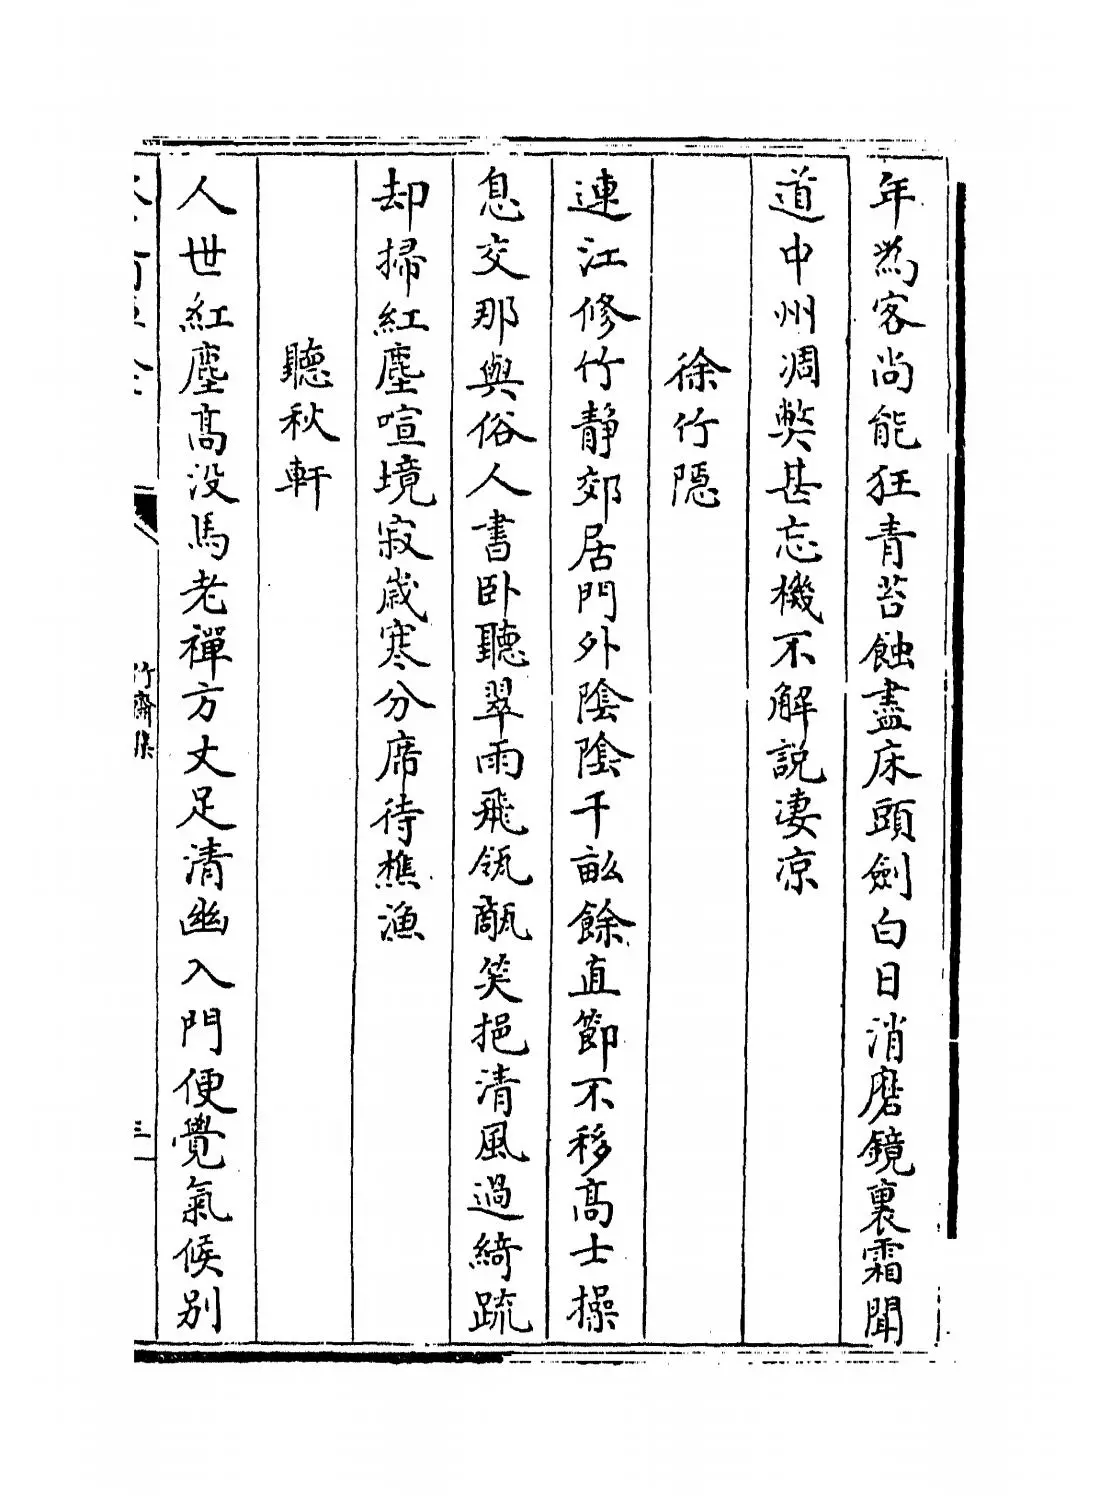 年為客尚能狂青苔蝕盡床頭劍白日消磨鏡裏霜聞
道中州凋弊甚忘機不解説凄凉
徐竹隠
連江修竹靜郊居門外陰陰千畝餘直節不移髙士操
息交那與俗人書卧聽翠雨飛瓴甋笑挹清風過綺疏
却掃紅塵喧境寂歳寒分席待樵漁
聽秋軒
人世紅塵髙没馬老禪方丈足清幽入門便覺氣候别
竹齋集